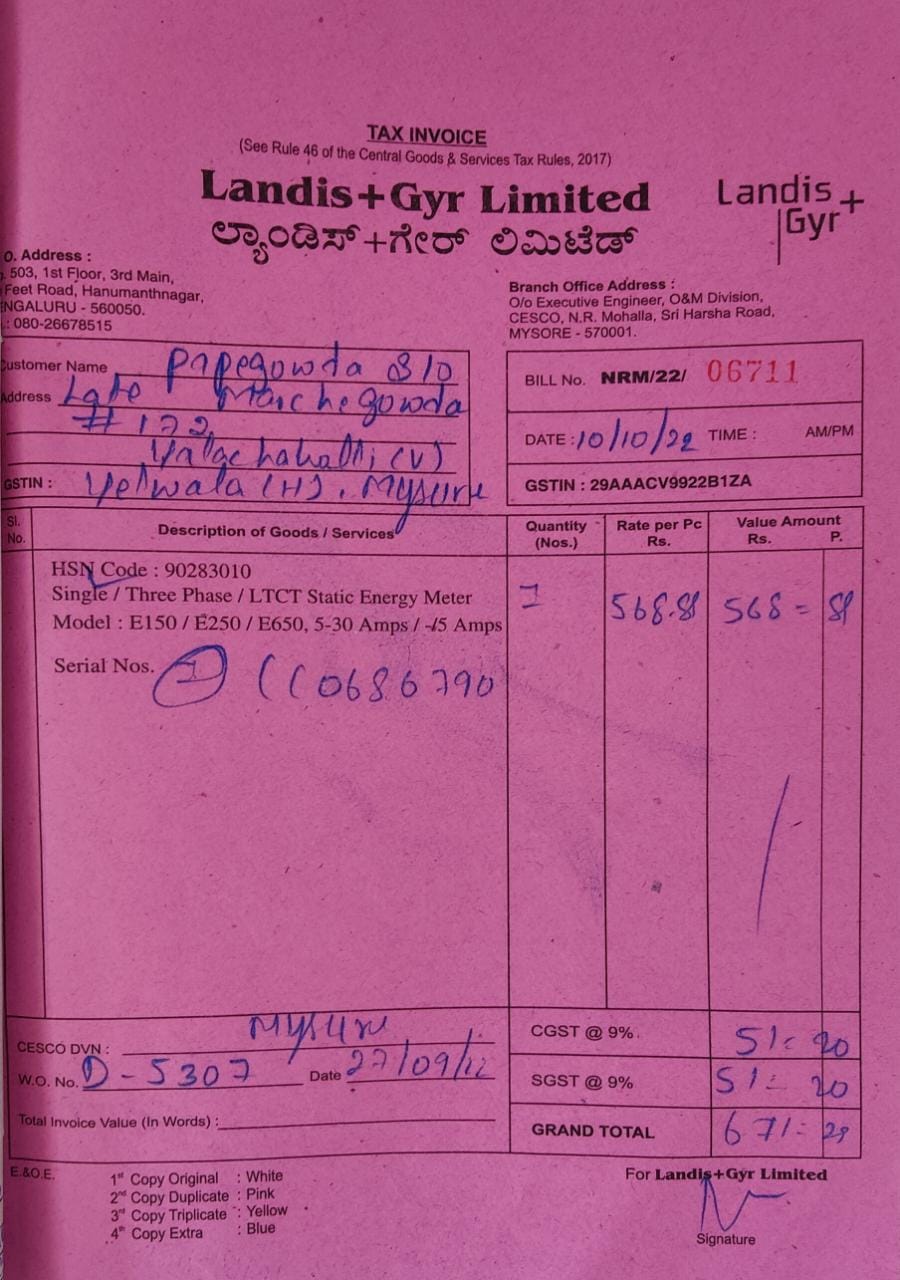 TAX INVOICE
(See Rule 46 of the Central Goods & Services Tax Rules, 2017)
Landis+Gyr Limited
ಲ್ಯಾಂಡಿಸ್+ಗೇರ್ ಲಿಮಿಟೆಡ್
Landis+
Gyr
O. Address :
503, 1st Floor, 3rd Main,
Feet Road, Hanumanthnagar,
NGALURU - 560050.
: 080-26678515
Branch Office Address :
O/o Executive Engineer, O&M Division,
CESCO, N.R. Mohalla, Sri Harsha Road,
MYSORE - 570001.
Customer Name Papegowda S/o
Address Late Marchegowda
# 172
Yalachahalli (V)
GSTIN : Yelwala (H), Mysuru
BILL No. NRM/22/ 06711
DATE : 10/10/22 TIME : AM/PM
GSTIN : 29AAACV9922B1ZA
Sl. No. Description of Goods / Services Quantity (Nos.) Rate per Pc Rs. Value Amount Rs. P.
HSN Code : 90283010
Single / Three Phase / LTCT Static Energy Meter 1 568.81 568 = 81
Model : E150 / E250 / E650, 5-30 Amps / -/5 Amps
Serial Nos. 1 CC0686790
CESCO DVN : Mysuru
W.O. No. D-5307 Date 27/09/22
Total Invoice Value (In Words) :
CGST @ 9% 51= 20
SGST @ 9% 51= 20
GRAND TOTAL 671= 21
E.&O.E.
1st Copy Original : White
2nd Copy Duplicate : Pink
3rd Copy Triplicate : Yellow
4th Copy Extra : Blue
For Landis+Gyr Limited
Signature